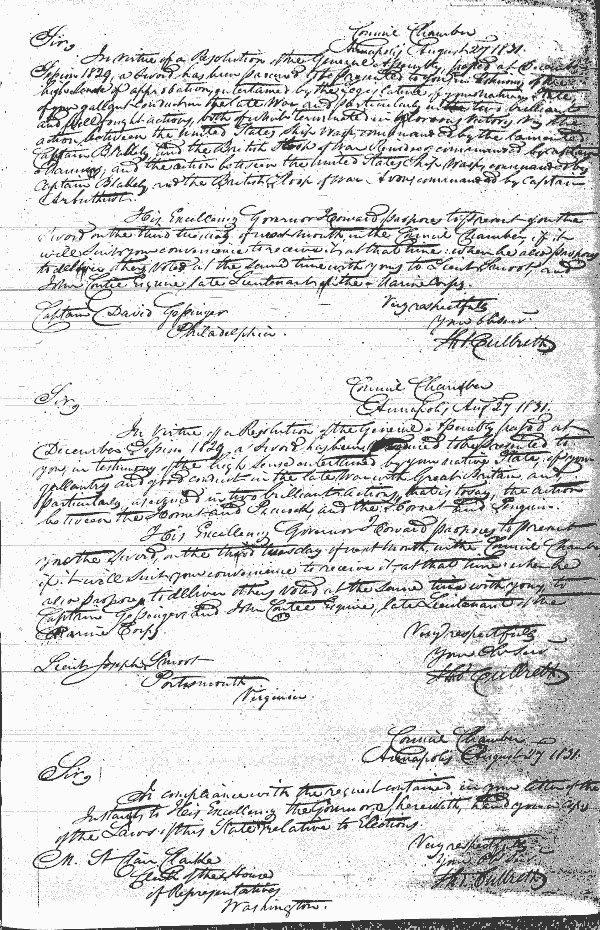 Council Chamber
Annapolis August 27 1831.
Sir,
In virtue of a Resolution of the General Assembly, passed at December
Session 1829, a Sword has been procured to be presented to you in testimony of the
high sense of approbation, entertained by the Legislature of your native State,
of your gallant conduct in the late War, and particularly in the two brilliant
and well fought actions, both of which terminated in glorious victory, viz. the
action between the United States Ship Wasp, commanded by the lamented
Captain Blakely and the British Sloop of War Reindeer commanded by Captain
Manners, and the action between the United States Ship Wasp, commanded by
Captain Blakely and the British Sloop of War Avon commanded by Captain
Arbuthnot.
His Excellency Governor Howard proposes to present you the
Sword on the third tuesday of next month in the Council Chamber, if it
will suit your convenience to receive it, at that time: when he also proposes
to deliver others voted at the same time with yours to Lieut. Smoot and
John Contee Esquire late Lieutenant of the Marine Corps.
Captain David Geisinger
Philadelphia.
Very respectfully
Your ob. Serv.
Th. Culbreth
Council Chamber
Annapolis, Aug. 27 1831.
Sir,
In virtue of a Resolution of the General Assembly passed at
December Session 1829, a Sword has been procured to be presented to
you, in testimony of the high sense entertained by your native State, of your
gallantry and good conduct in the late War with Great Britain and
particularly, as evinced in two brilliant actions, that is to say, the action
between the Hornet and Peacock and the Hornet and Penguin.
His Excellency Governor Howard proposes to present
you the Sword, on the third tuesday of next Month, in the Council Chamber
if it will suit your convenience to receive it, at that time when he
also proposes to deliver others voted at the same time with yours, to
Captain Geisinger and John Contee Esquire, late Lieutenant of the
Marine Corps
Lieut. Joseph Smoot
Portsmouth
Virginia
Very respectfully
Your Ob. Serv.
Th. Culbreth
Council Chamber
Annapolis August 27 1831.
Sir,
In compliance with the request contained in your letter of the
Instant, to His Excellency the Governor, I herewith, hand you a copy
of the Laws of this State relative to Elections.
M. St. Clair Clarke
Clerk of the House
of Representatives
Washington.
Very respectfully
Your Ob. Serv.
Th. Culbreth